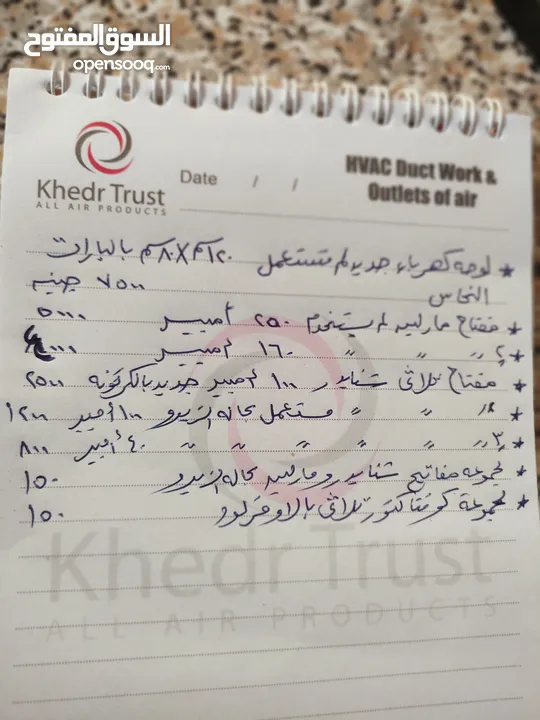 السوق المفتوح
opensooq.com
Khedr Trust
ALL AIR PRODUCTS
Date / /
HVAC Duct Work &
Outlets of air
* لوحه كهرباء جديده لم تستعمل ١٢٠سم X ٨٠سم بالبارات
النحاس ٧٥٠٠ جنيه
* مفتاح مارلين لم يستخدم ٢٥٠ أمبير ٥٠٠٠
* ٢ " " " ١٦٠ أمبير
* مفتاح ثلاثى شنايدر ١٠٠ أمبير جديد بالكرتونه ٢٥٠٠
* " " " مستعمل بحاله الزيرو ١٠٠ أمبير ١٢٠٠
* ٣ " " " " " " ٤٠ أمبير ٨٠٠
* مجموعه مفاتيح شنايدر ومارلين بحاله الزيرو ١٥٠
* مجموعة كونتاكتور ثلاثى بالاوفرلود ١٥٠
Khedr Trust
ALL AIR PRODUCTS